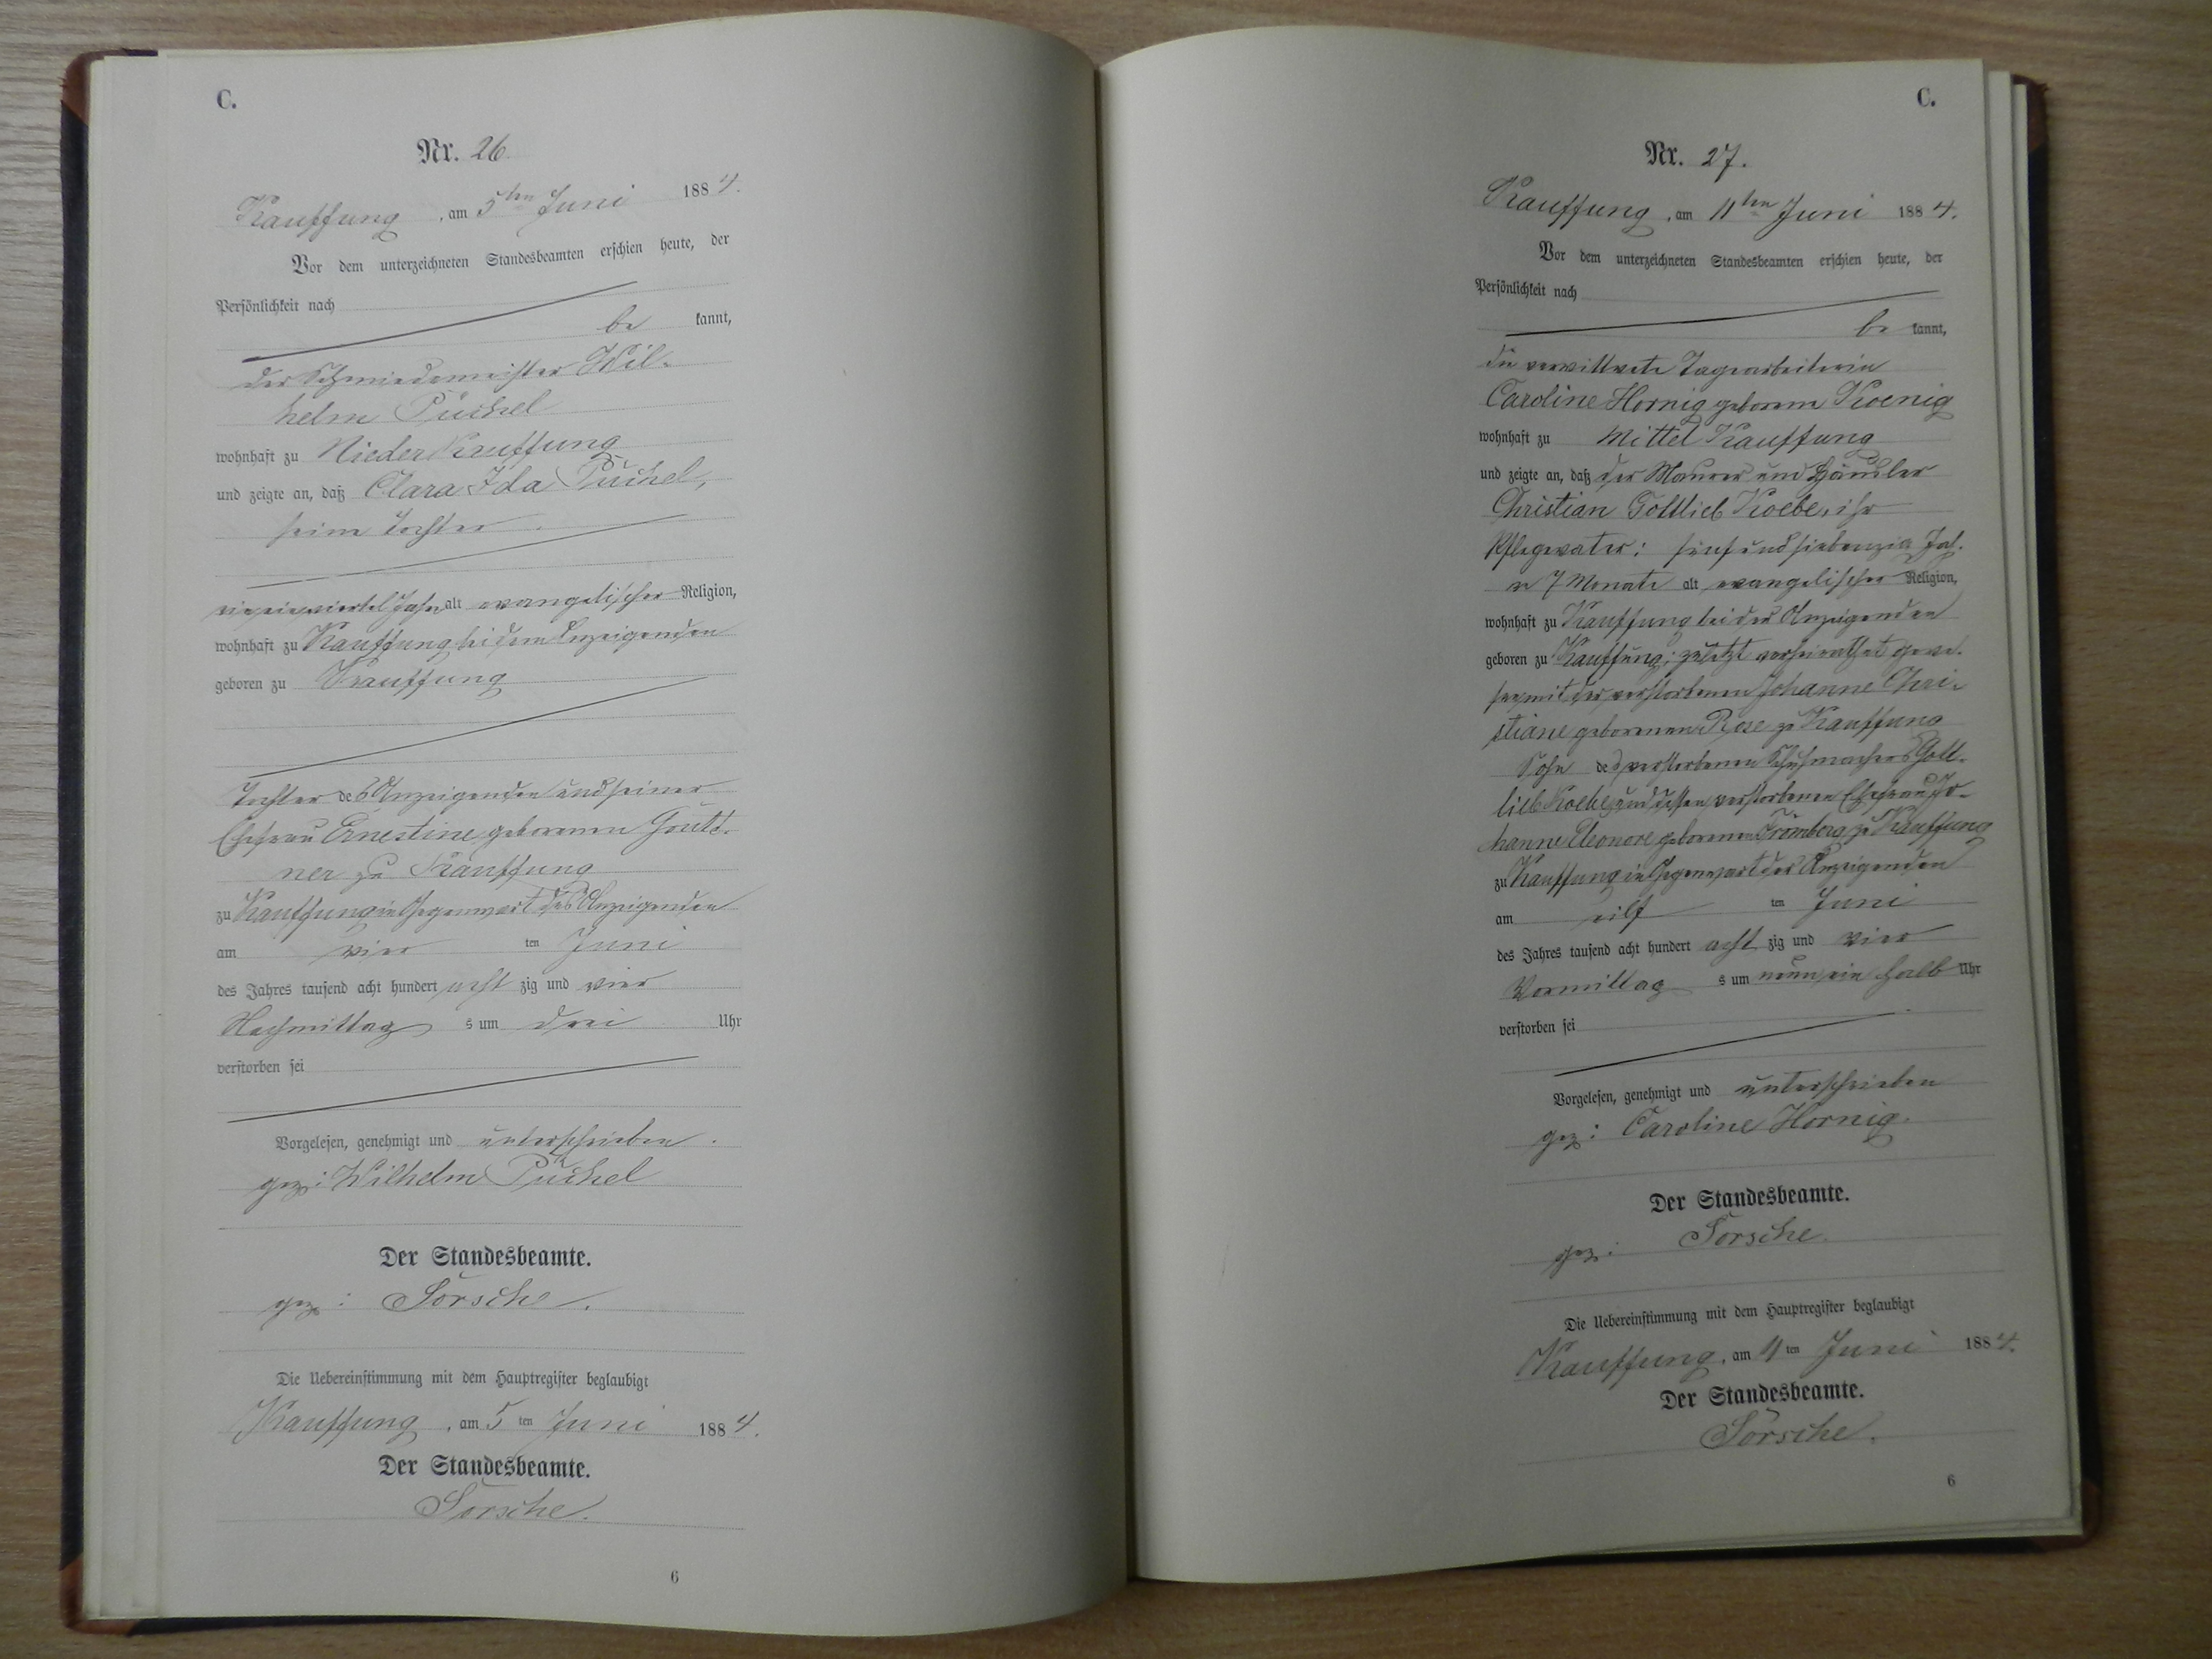 C.
Nr. 26.
Kauffung, am 5ten Juni 1884.
Vor dem unterzeichneten Standesbeamten erschien heute, der
Persönlichkeit nach
be kannt,
der Schmiedemeister Wil-
helm Püschel
wohnhaft zu Nieder Kauffung
und zeigte an, daß Clara Ida Püschel,
seine Tochter
ein ein viertel Jahr alt evangelischer Religion,
wohnhaft zu Kauffung bei dem Anzeigenden
geboren zu Kauffung
Tochter des Anzeigenden und seiner
Ehefrau Ernestine geborenen
ner zu Kauffung
zu Kauffung in Gegenwart des Anzeigenden
am vier ten Juni
des Jahres tausend acht hundert acht zig und vier
Nachmittag s um drei Uhr
verstorben sei
Vorgelesen, genehmigt und unterschrieben.
gez: Wilhelm Püschel
Der Standesbeamte.
gez: Sorsche.
Die Uebereinstimmung mit dem Hauptregister beglaubigt
Kauffung, am 5ten Juni 1884.
Der Standesbeamte.
Sorsche.
6
C.
Nr. 27.
Kauffung, am 11ten Juni 1884.
Vor dem unterzeichneten Standesbeamten erschien heute, der
Persönlichkeit nach
be kannt,
die verwittwete Tagearbeiterin
Caroline Hornig geborene Koenig
wohnhaft zu Mittel Kauffung
und zeigte an, daß der Maurer und Häusler
Christian Gottlieb Koebe, ihr
Pflegevater: fünf und siebenzig Jah-
re 7 Monate alt evangelischer Religion,
wohnhaft zu Kauffung bei der Anzeigenden
geboren zu Kauffung; zuletzt verheirathet gewe-
sen mit der verstorbenen Johanne Chri-
stiane geborenen Rose zu Kauffung
Sohn des verstorbenen Schuhmachers Gott-
lieb Koebe und dessen verstorbenen Ehefrau Jo-
hanne Eleonore geborenen Fromberg zu Kauffung
zu Kauffung in Gegenwart der Anzeigenden
am eilf ten Juni
des Jahres tausend acht hundert acht zig und vier
Vormittag s um neun ein halb Uhr
verstorben sei
Vorgelesen, genehmigt und unterschrieben
gez: Caroline Hornig.
Der Standesbeamte.
gez: Sorsche.
Die Uebereinstimmung mit dem Hauptregister beglaubigt
Kauffung, am 11ten Juni 1884.
Der Standesbeamte.
Sorsche.
6